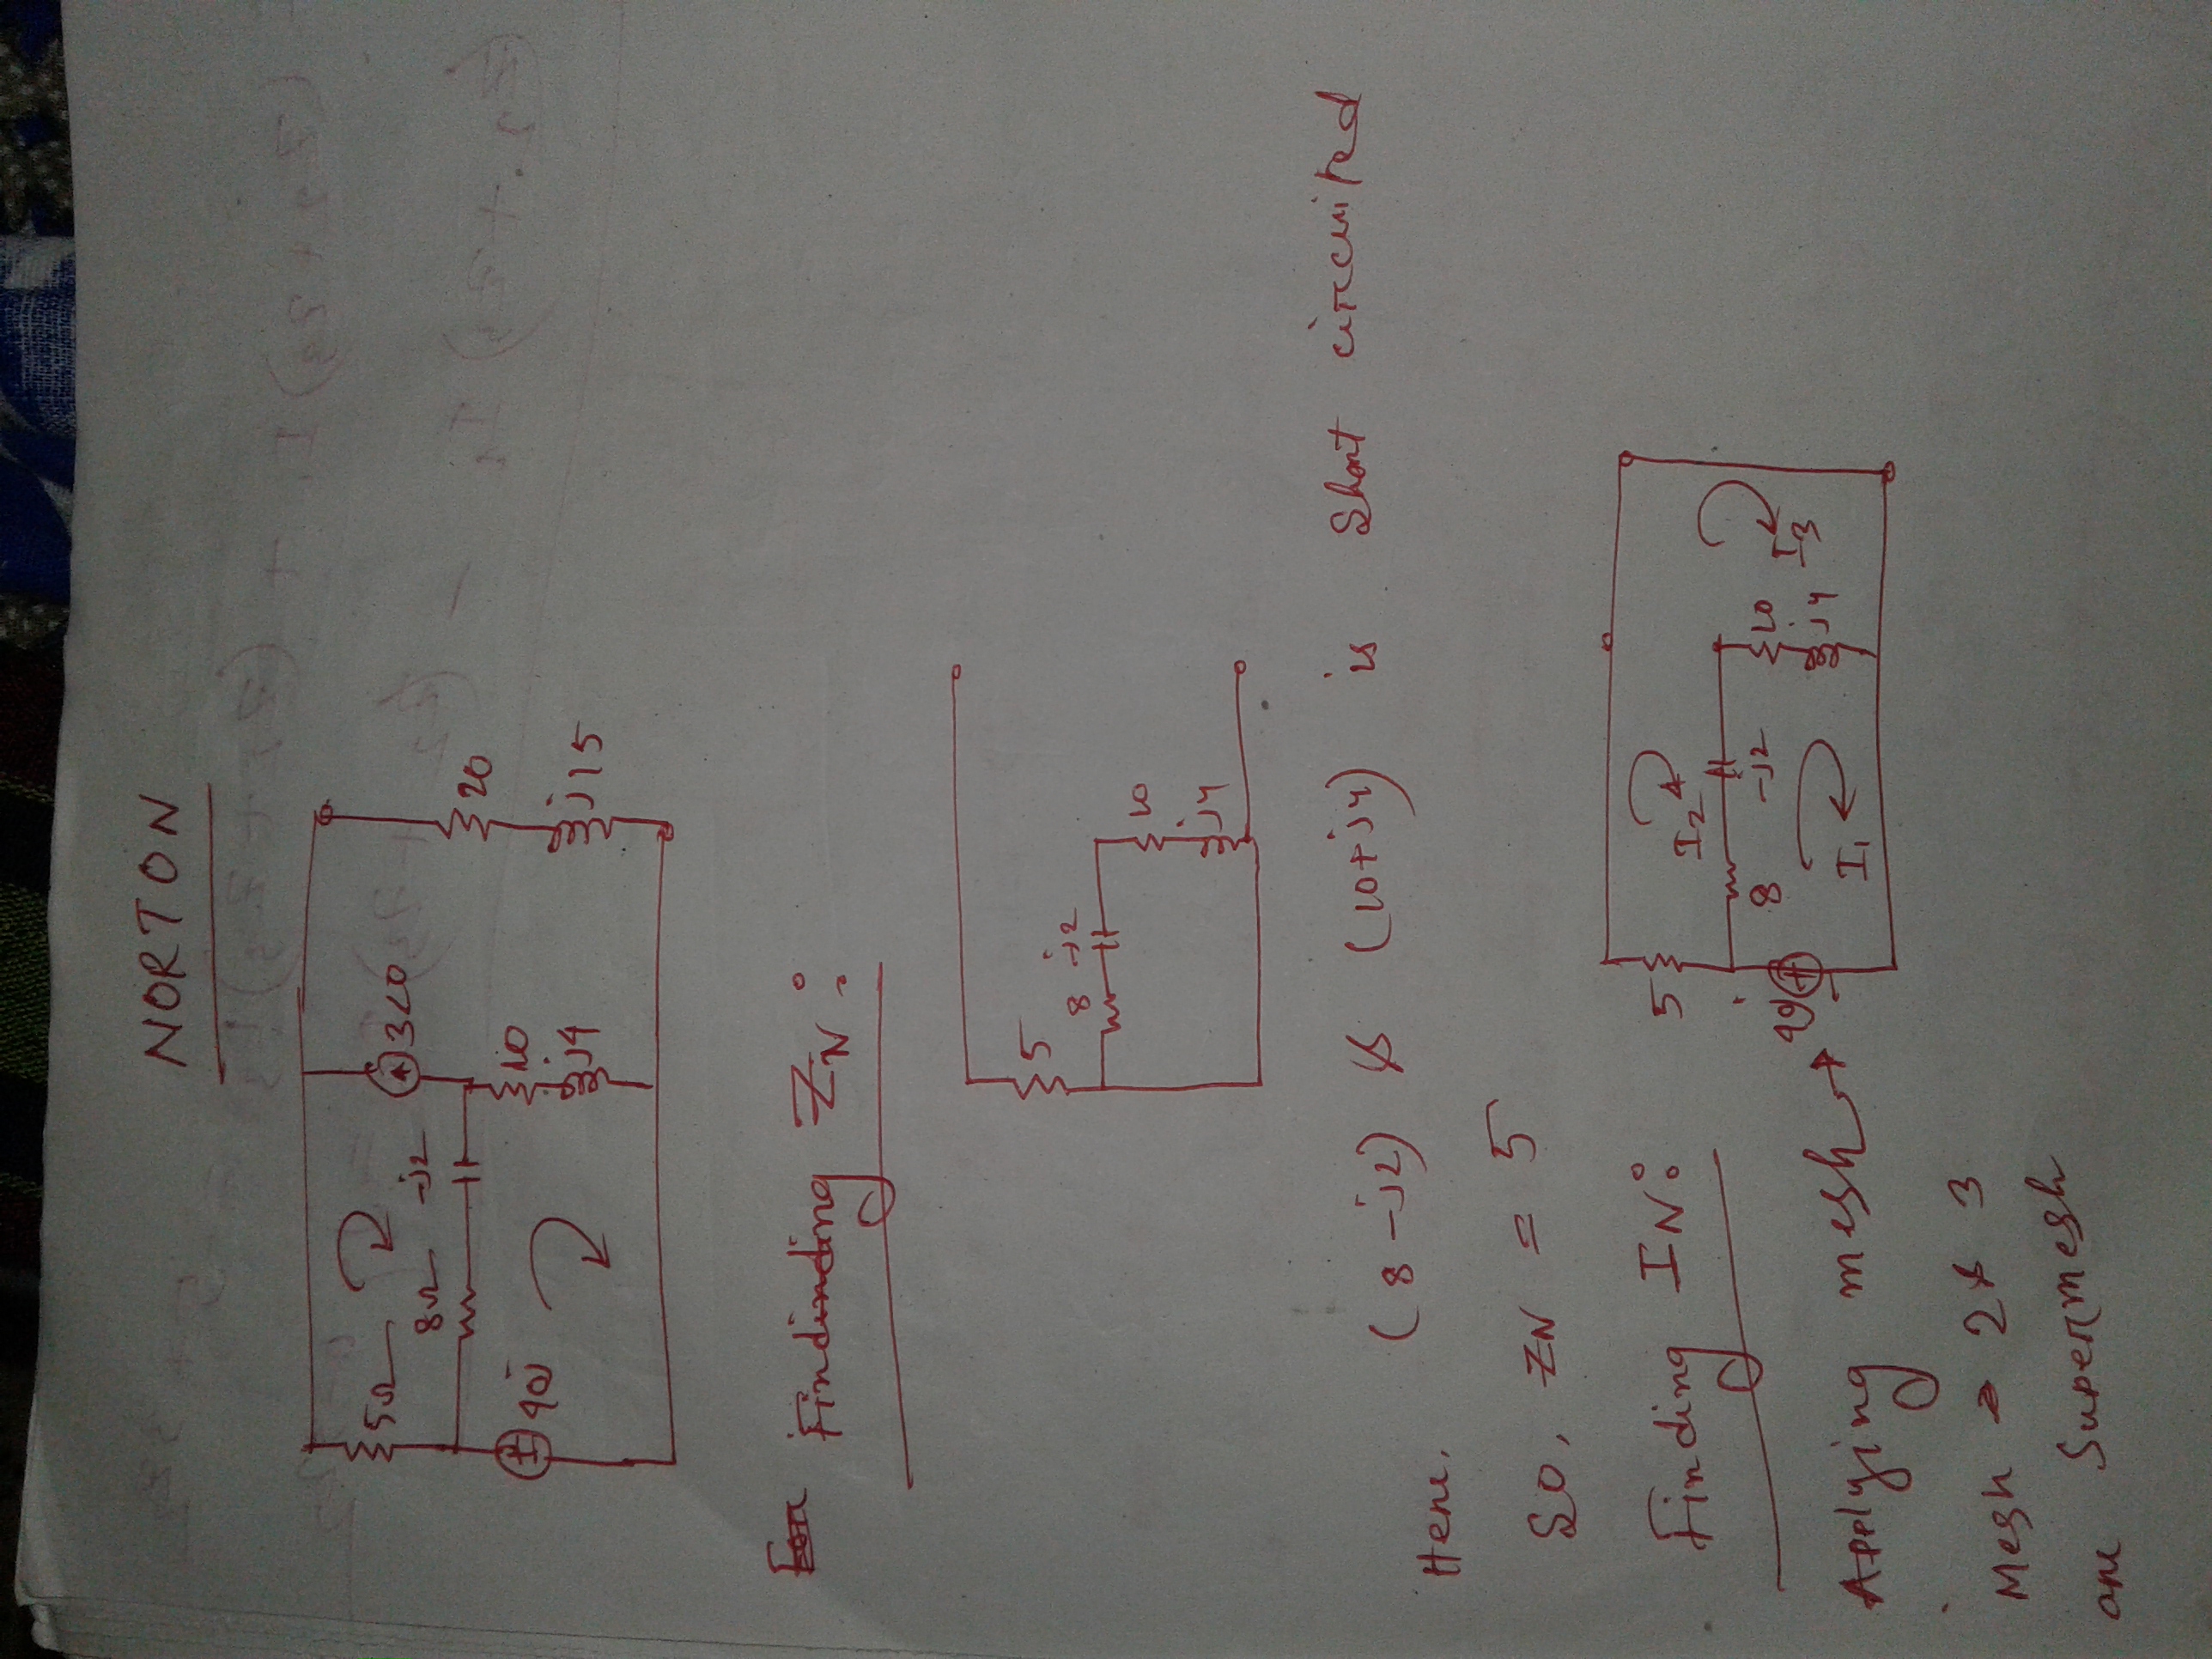 NORTON
5Ω
8Ω -j2
3∠0
40j
10
j4
20
j15
Findinding ZN:
5
8 -j2
10
j4
Here, (8-j2) & (10+j4) is Short circuited
So, ZN = 5
Finding IN:
5
I2
8 -j2
10
j4
I3
I1
Applying mesh →
Mesh → 2 & 3
are Supermesh